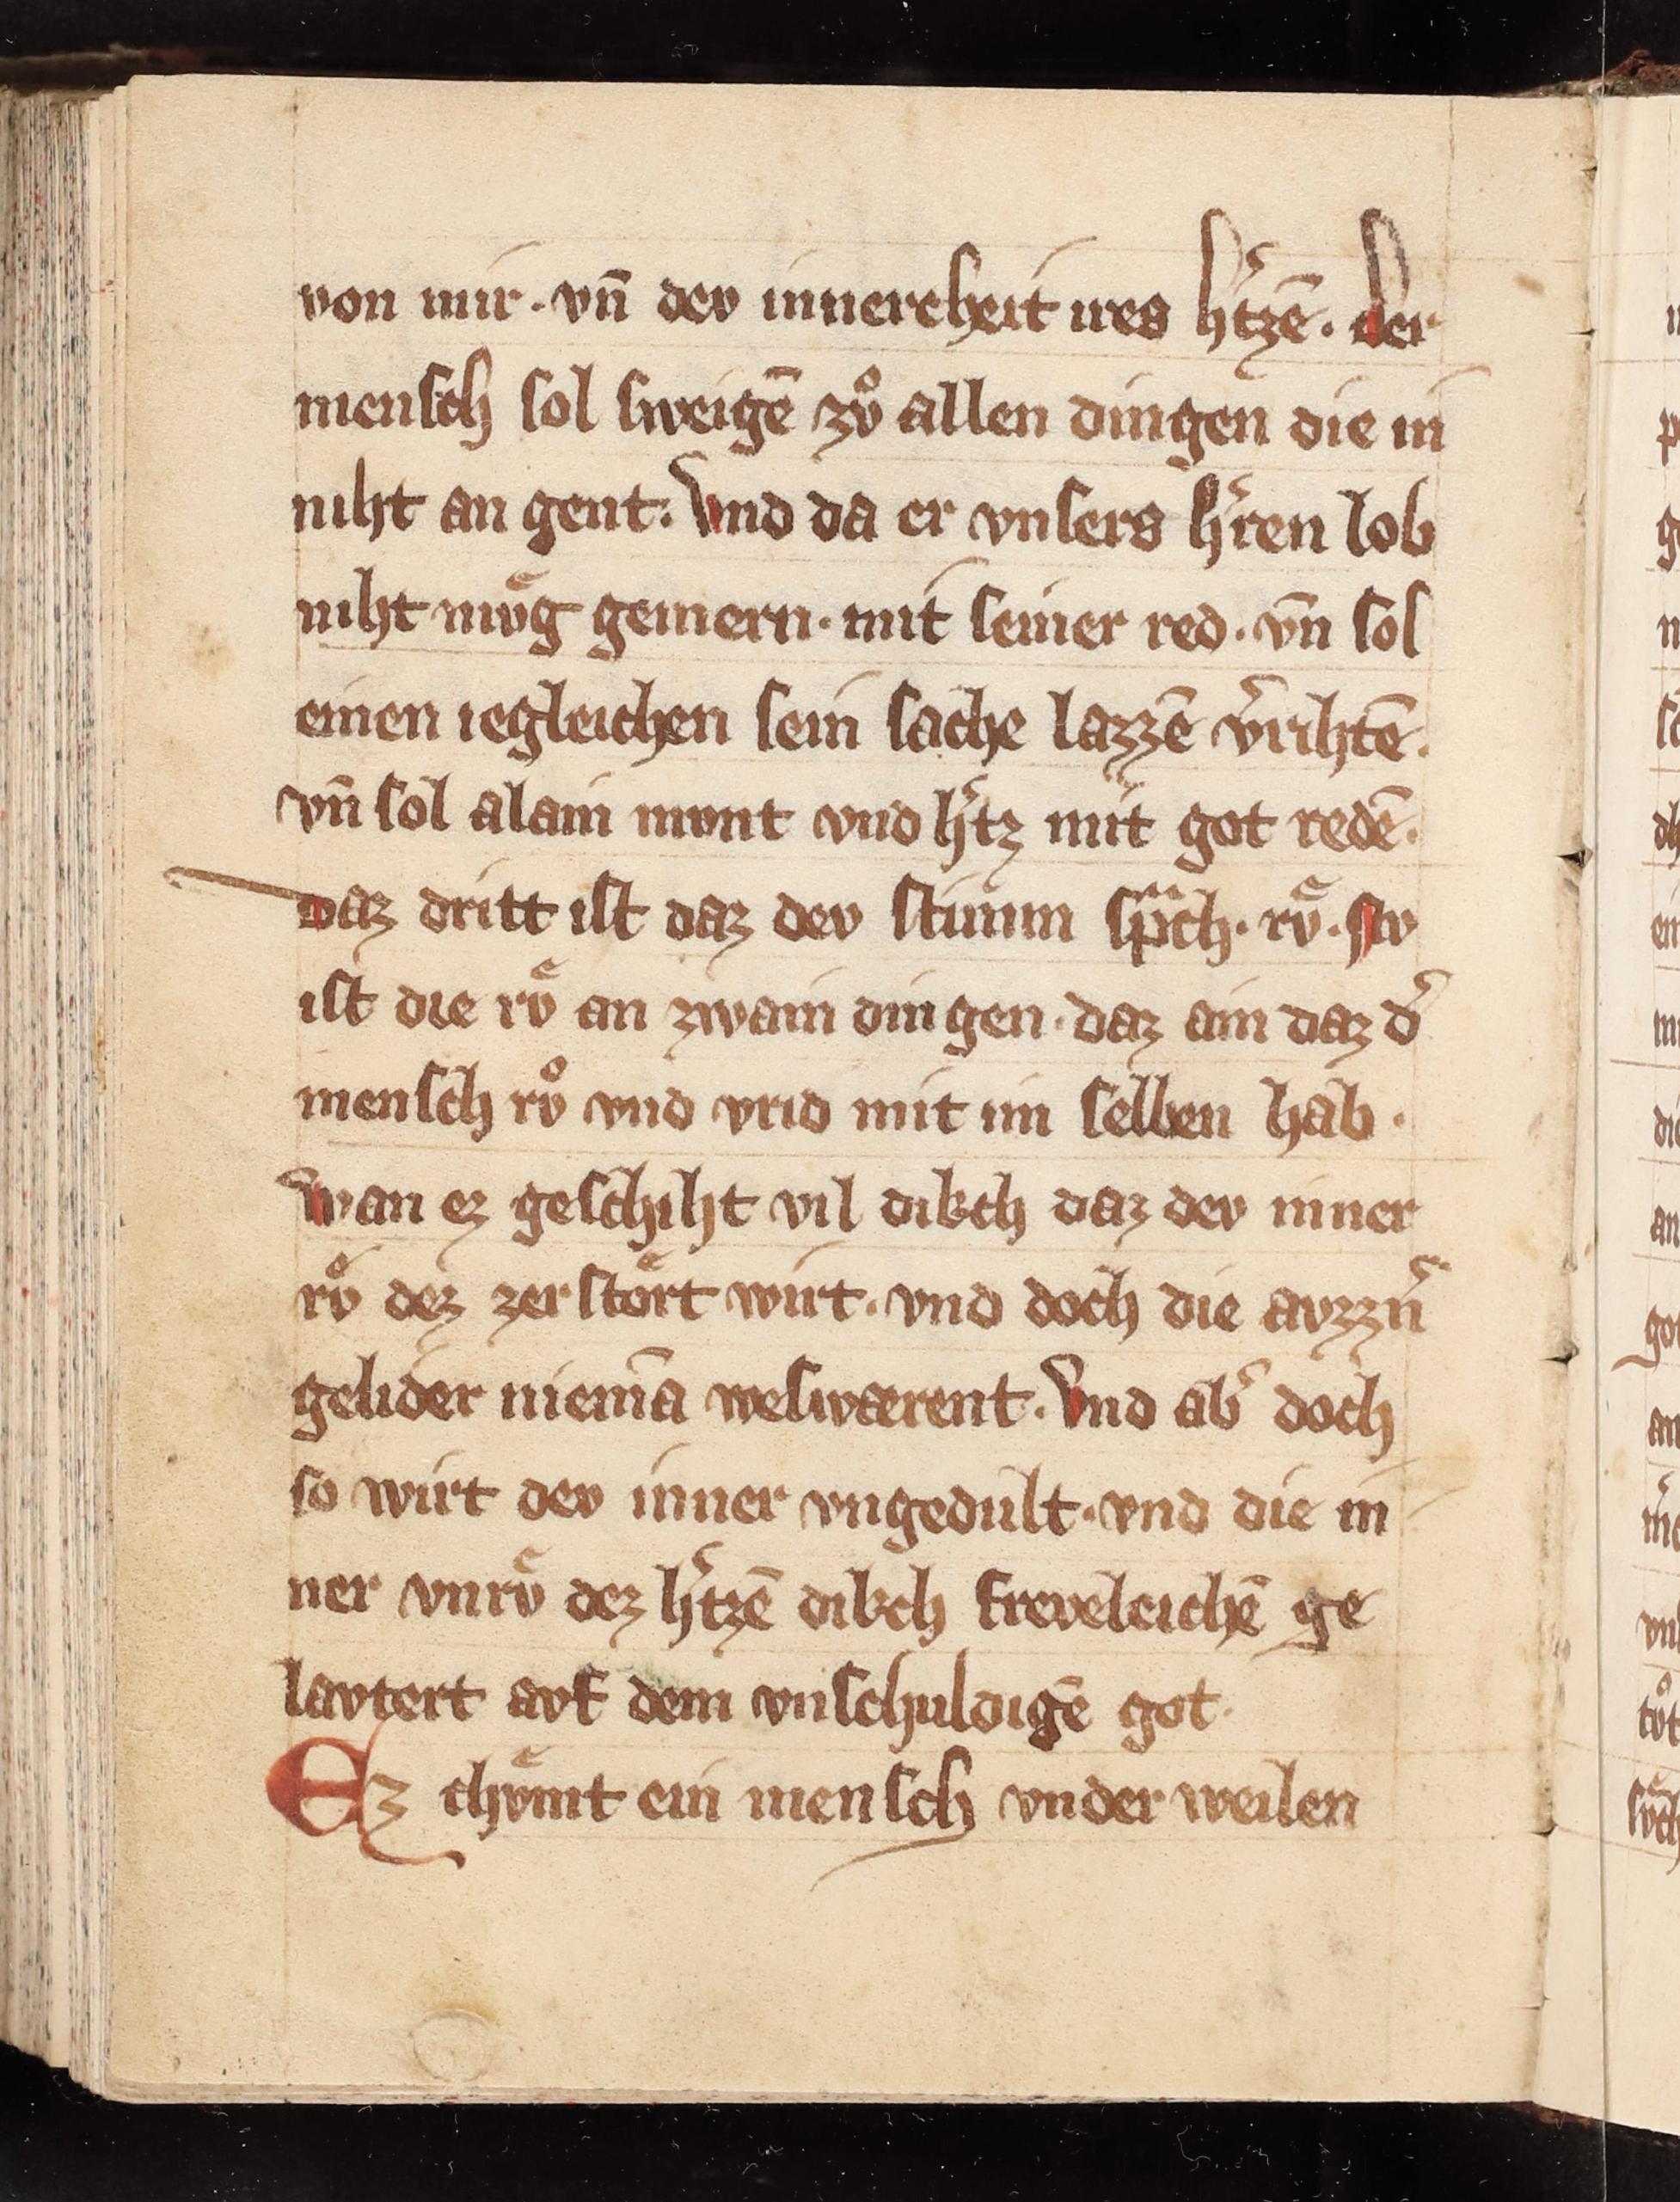 von mir · vn̄ dev innercheit ires h͛tzē · der
mensch sol sweigē zvͦ allen dingen die in
niht an gent · Vnd da er vnsers h͛ren lob
niht mvͤg gemern · mit seiner red · vn̄ sol
einen iegleichen sein sache lazzē v͛rihtē ·
vn̄ sol alain mvnt vnd h͛tz mit got redē ·
daz dritt ist daz dev stimm spͣch · rvͤ · Nv
ist die rvͤ an zwain dingen · daz ain daz d͛
mensch rvͦ vnd vrid mit im selben hab ·
Wan ez geschiht vil dikch daz dev inner
rvͤ dez zerstoͤrt wirt · vnd doch die avzzn͛
gelider niemā weswærent · Vnd ab͛ doch
so wirt dev inner vngedult · vnd die in
ner vnrvͤ dez h͛tzē dikch freveleichē ge
lavtert avf dem vnschuldigē got ·
Ez chvͤmt ein mensch vnder weilen